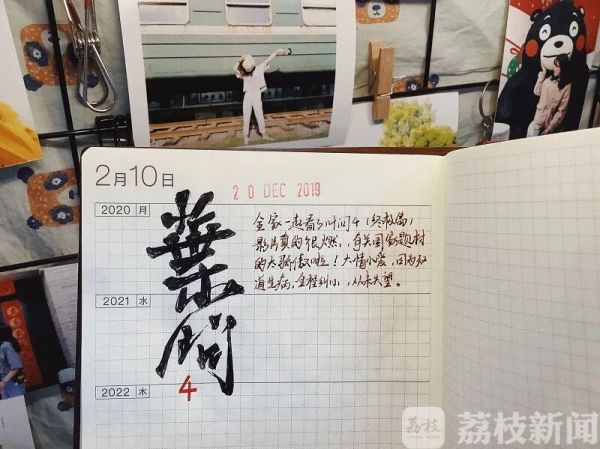 2月10日
20 DEC 2019
2020 月
葉問
4
全家一起看了叶问4(终极篇)
影片真的很燃,有关国家题材
的太骄傲啦!大情小爱,因为知
道生病,全程
2021 水
2022 木
荔枝
荔枝新闻